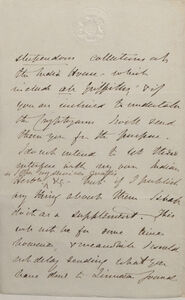 stupendous collections at
the India House - which
include all Griffiths' & if
you are inclined to undertake
the Cryptogams I wold send
them you for the purpose.
I do not intend to let these
interfere with my own Indian
Herbm &c. But if I publish
any thing about them I shall
do it as a supplement. This
will not be for some time
however, & meanwhile I would
not delay sending what you
have done to Linnean Journal